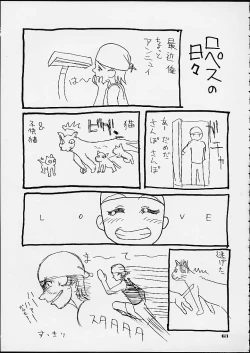 ロペスの
日々
最近俺
ちょっと
アンニュイ
はー
ガチャ
あーだめだ
さんぽさんぽ
ビクッ!
猫
&
子供猫
LOVE
逃げた
まーて
スタタタタ
ハァハァ
すっきり